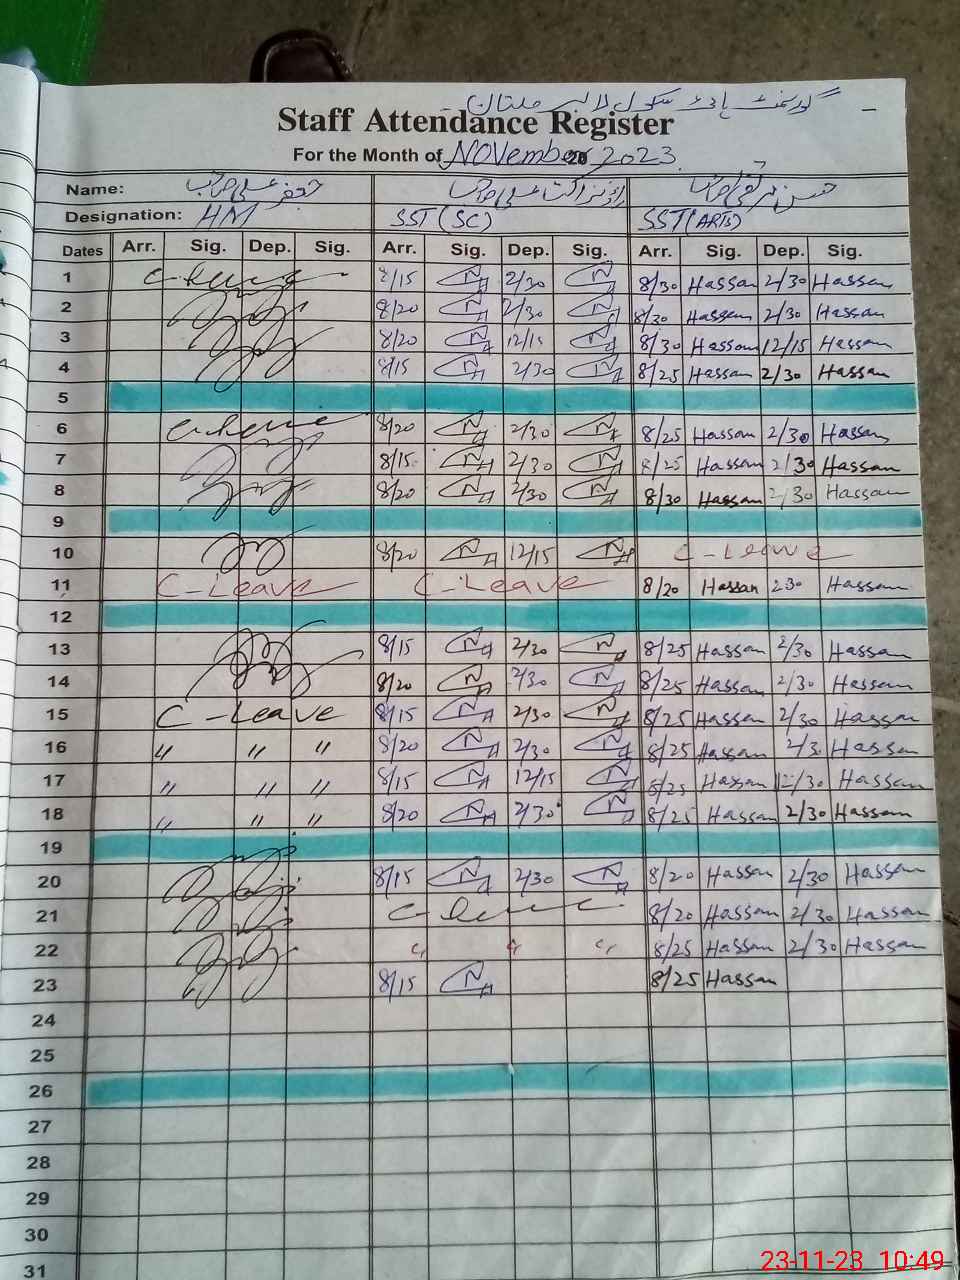 گورنمنٹ ہائی سکول لابر ملتان
Staff Attendance Register
For the Month of November 20 2023
Name: جعفر علی صاحب علی صاحب حسن مرتضی صاحب
Designation: HM SST (SC) SST (ARTS)
Dates Arr. Sig. Dep. Sig. Arr. Sig. Dep. Sig. Arr. Sig. Dep. Sig.
1 C-leave 8/15 2/30 8/30 Hassan 2/30 Hassan
2 8/20 2/30 8/30 Hassan 2/30 Hassan
3 8/20 12/15 8/30 Hassan 12/15 Hassan
4 8/15 2/30 8/25 Hassan 2/30 Hassan
5
6 C-leave 8/20 2/30 8/25 Hassan 2/30 Hassan
7 8/15 2/30 8/25 Hassan 2/30 Hassan
8 8/20 2/30 8/30 Hassan 2/30 Hassan
9
10 8/20 12/15 C-Leave
11 C-Leave C-Leave 8/20 Hassan 230 Hassan
12
13 8/15 2/30 8/25 Hassan 2/30 Hassan
14 8/20 2/30 8/25 Hassan 2/30 Hassan
15 C-Leave 8/15 2/30 8/25 Hassan 2/30 Hassan
16 〃 〃 〃 8/20 2/30 8/25 Hassan 2/3 Hassan
17 〃 〃 〃 8/15 12/15 8/25 Hassan 12/30 Hassan
18 〃 〃 〃 8/20 2/30 8/25 Hassan 2/30 Hassan
19
20 8/15 2/30 8/20 Hassan 2/30 Hassan
21 C-leave 8/20 Hassan 2/30 Hassan
22 〃 〃 〃 8/25 Hassan 2/30 Hassan
23 8/15 8/25 Hassan
24
25
26
27
28
29
30
31
23-11-23 10:49